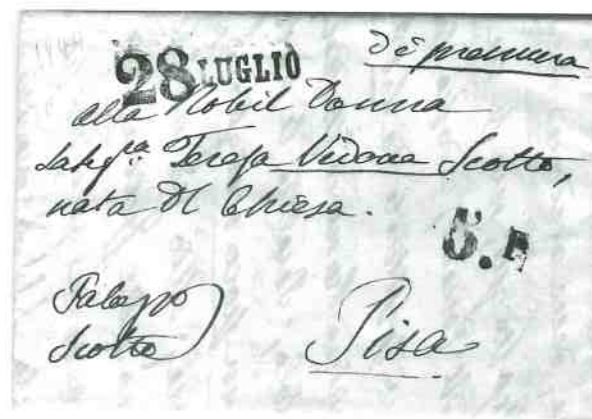 1844
28 LUGLIO
Di premura
alla Nobil Donna
la Sig.ra Teresa Vedova Scotto,
nata Del Chiesa.
Palazzo
Scotto
Pisa